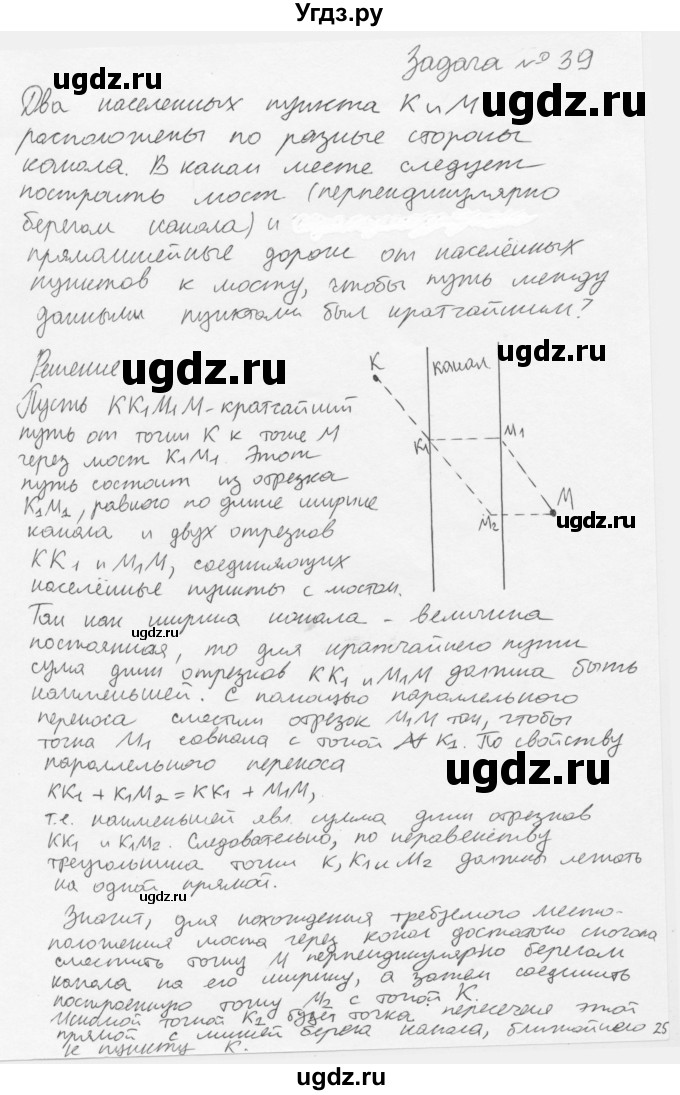 Угдз.ру
Задача № 39
Два населенных пункта К и М
расположены по разные стороны
канала. В каком месте следует
построить мост (перпендикулярно
берегам канала) и
прямолинейные дороги от населённых
пунктов к мосту, чтобы путь между
данными пунктами был кратчайшим?
Решение
Пусть КК₁М₁М - кратчайший
путь от точки К к точке М
через мост К₁М₁. Этот
путь состоит из отрезка
К₁М₁, равного по длине ширине
канала и двух отрезков
КК₁ и М₁М, соединяющих
населённые пункты с мостом.
К
канал
К₁
М₁
М₂
М
Так как ширина канала - величина
постоянная, то для кратчайшего пути
сума длин отрезков КК₁ и М₁М должна быть
наименьшей. С помощью параллельного
переноса сместим отрезок М₁М так, чтобы
точка М₁ совпала с точкой К₁. По свойству
параллельного переноса
КК₁ + К₁М₂ = КК₁ + М₁М,
т.е. наименьшей явл. сумма длин отрезков
КК₁ и К₁М₂. Следовательно, по неравенству
треугольника точки К, К₁ и М₂ должны лежать
на одной прямой.
Значит, для нахождения требуемого место-
положения моста через канал достаточно сначала
сместить точку М перпендикулярно берегам
канала на его ширину, а затем соединить
построенную точку М₂ с точкой К.
Искомой точкой К₂ будет точка пересечения этой
прямой с линией берега канала, ближайшего 25
к пункту К.
ugdz.ru
ugdz.ru
ugdz.ru
ugdz.ru
ugdz.ru
ugdz.ru
ugdz.ru
ugdz.ru
ugdz.ru
ugdz.ru
ugdz.ru